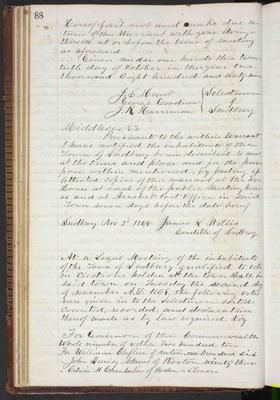 88
Hereof fail not and make due re-
turn of this Warrant with your doings
thereon at or before the time of meeting
as aforesaid.
Given under our hands this twen-
tieth day of October in the year one
thousand Eight hundred and sixty nine
J. S. Hunt } Selectmen
George Goodnow } of
J. R. Harriman } Sudbury
Middlesex SS.
Pursuant to the within Warrant
I have notified the inhabitants of the
Town of Sudbury herein described to meet
at the time and place and for the pur-
pose within mentioned, by posting up
attested copies of this warrant at the
at each of the public Meeting hou-
ses, and at Post Office in said
Town seven days before the date
Sudbury Nov. 2d 1869 James L. Willis
Constable of Sudbury
At a Legal Meeting of the inhabitants
of the Town of Sudbury qualified to vote
in Elections holden at the town Hall in
said town on Tuesday the second day
of November A.D. 1869, the following votes
were given in to the Selectmen, sorted
counted, recorded, and declaration
thereof made as by law required viz.
For Governor of the Commonwealth
Whole number of votes two hundred ten
For William Claflin of Newton one hundred six
John Quincy Adams of Boston ninety three
Edwin M. Chamberlain of Boston Eleven